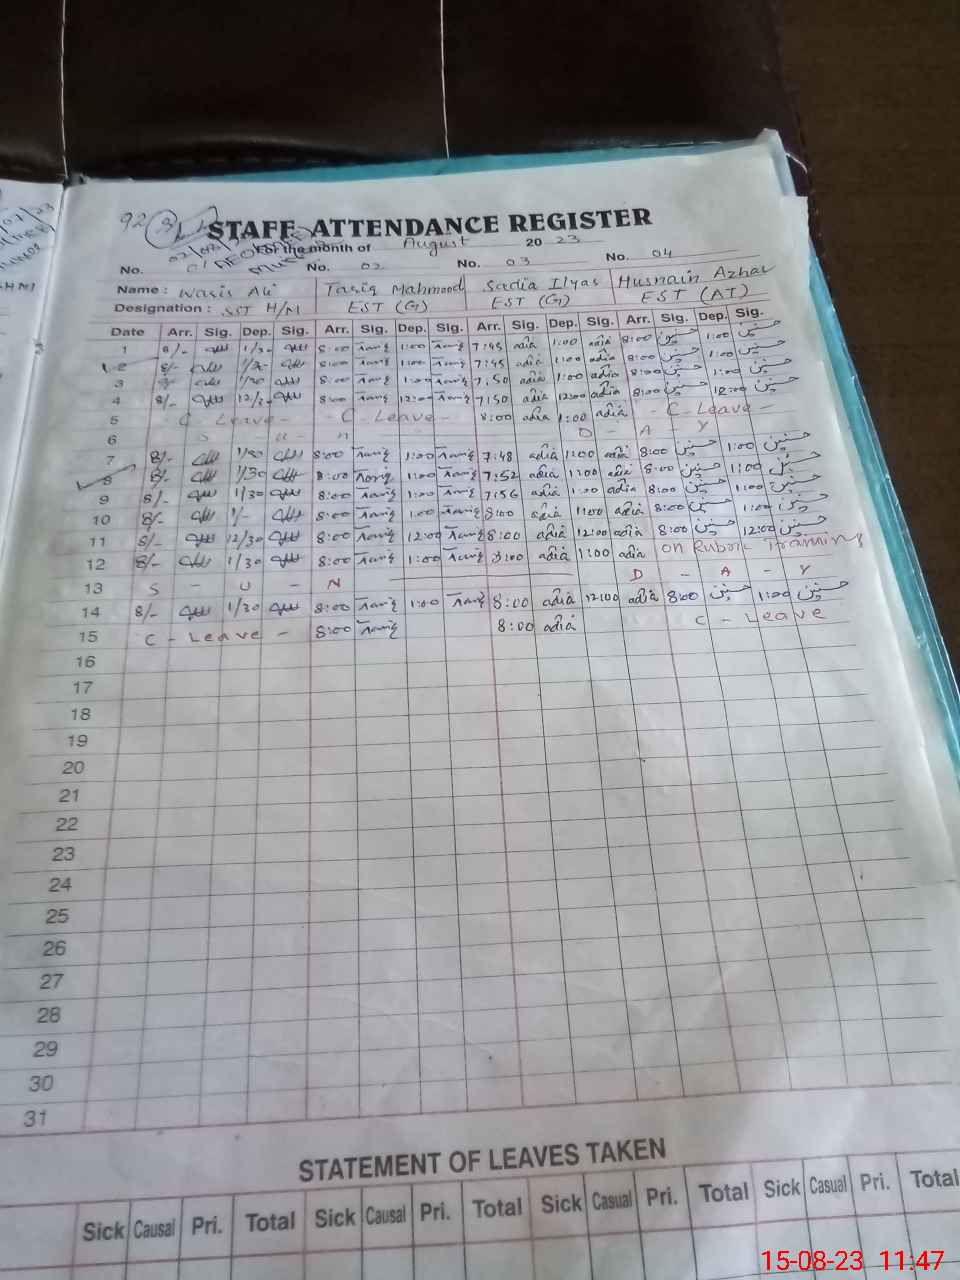 92
STAFF ATTENDANCE REGISTER
For the month of August 2023
No. No. 02 No. 03 No. 04
Name : Waris Ali Tariq Mahmood Sadia Ilyas Husnain Azhar
Designation : SST H/M EST (G) EST (G) EST (AT)
Date Arr. Sig. Dep. Sig. Arr. Sig. Dep. Sig. Arr. Sig. Dep. Sig. Arr. Sig. Dep. Sig.
1 8/- 1/30 8:00 Tariq 1:00 Tariq 7:45 adia 1:00 adia 8:00 حسنین 1:00 حسنین
2 8/- 1/30 8:00 Tariq 1:00 Tariq 7:45 adia 1:00 adia 8:00 حسنین 1:00 حسنین
3 8/- 1/30 8:00 Tariq 1:00 Tariq 7:50 adia 1:00 adia 8:00 حسنین 1:00 حسنین
4 8/- 12/30 8:00 Tariq 12:00 Tariq 7:50 adia 12:00 adia 8:00 حسنین 12:00 حسنین
5 - C - Leave - - C - Leave - 8:00 adia 1:00 adia - C - Leave -
6 S - U - N D - A - Y
7 8/- 1/30 8:00 Tariq 1:00 Tariq 7:48 adia 1:00 adia 8:00 حسنین 1:00 حسنین
8 8/- 1/30 8:00 Tariq 1:00 Tariq 7:52 adia 1:00 adia 8:00 حسنین 1:00 حسنین
9 8/- 1/30 8:00 Tariq 1:00 Tariq 7:56 adia 1:00 adia 8:00 حسنین 1:00 حسنین
10 8/- 1/- 8:00 Tariq 1:00 Tariq 8:00 adia 1:00 adia 8:00 حسنین 1:00 حسنین
11 8/- 12/30 8:00 Tariq 12:00 Tariq 8:00 adia 12:00 adia 8:00 حسنین 12:00 حسنین
12 8/- 1/30 8:00 Tariq 1:00 Tariq 8:00 adia 1:00 adia on Rubric Training
13 S - U - N D - A - Y
14 8/- 1/30 8:00 Tariq 1:00 Tariq 8:00 adia 12:00 adia 8:00 حسنین 1:00 حسنین
15 C - Leave - 8:00 Tariq 8:00 adia C - Leave
16
17
18
19
20
21
22
23
24
25
26
27
28
29
30
31
STATEMENT OF LEAVES TAKEN
Sick Causal Pri. Total Sick Casual Pri. Total Sick Casual Pri. Total Sick Casual Pri. Total
15-08-23 11:47